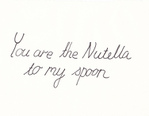 You are the Nutella
to my spoon